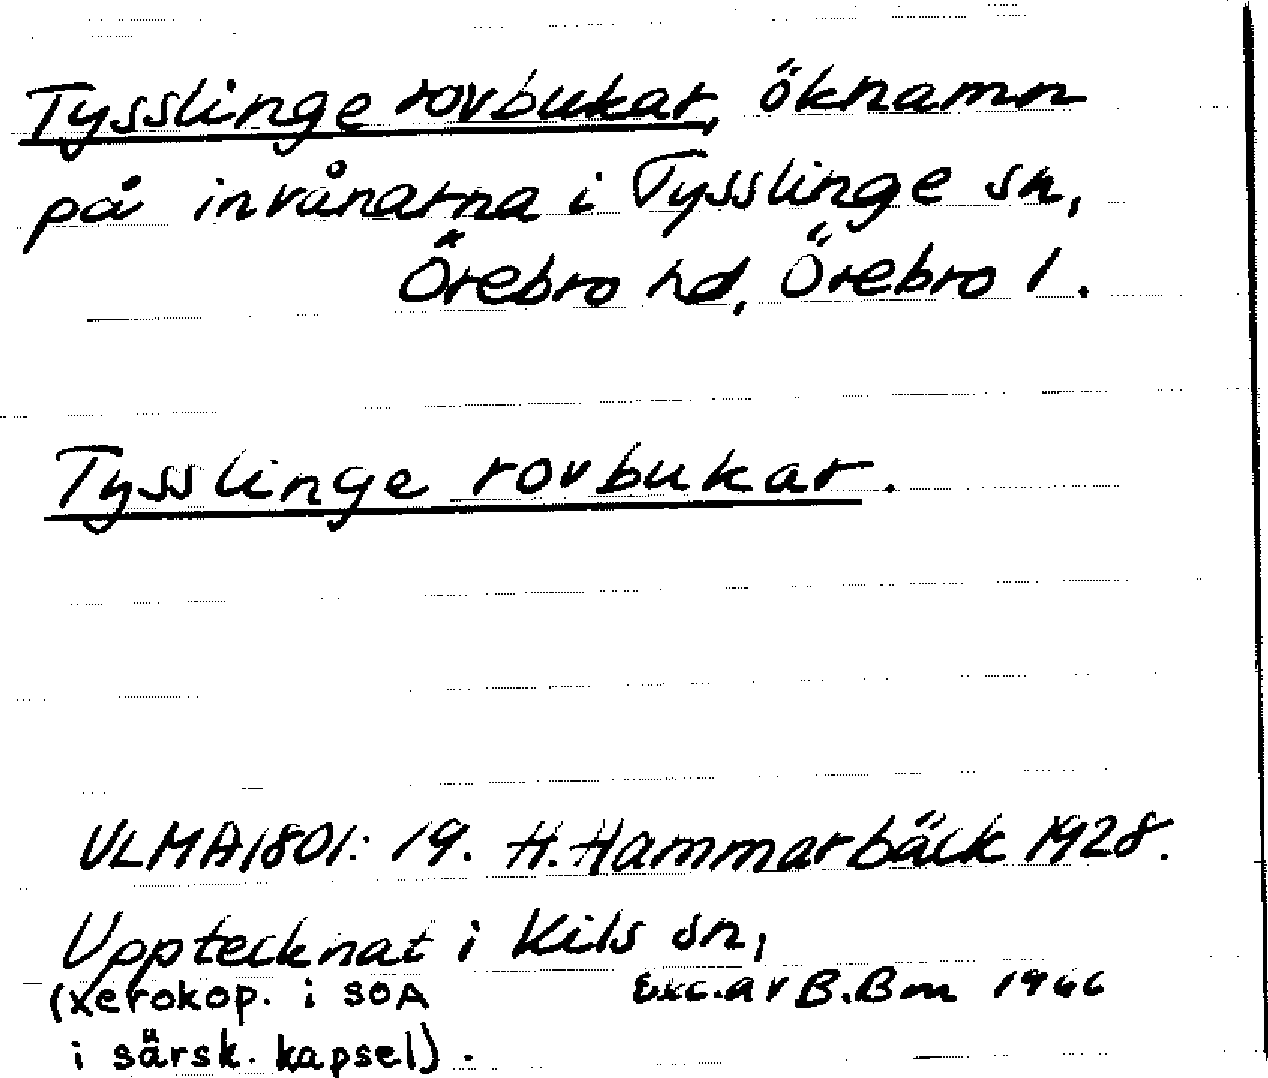 Tysslinge rovbukar, öknamn
på invånarna i Tysslinge sn,
Örebro hd, Örebro l.
Tysslinge rovbukar.
ULMA 1801: 19. H. Hammarbäck 1928.
Upptecknat i Kils sn,
(xerokop. i SOA
Exc. av B.Bm 1966
i särsk. kapsel).